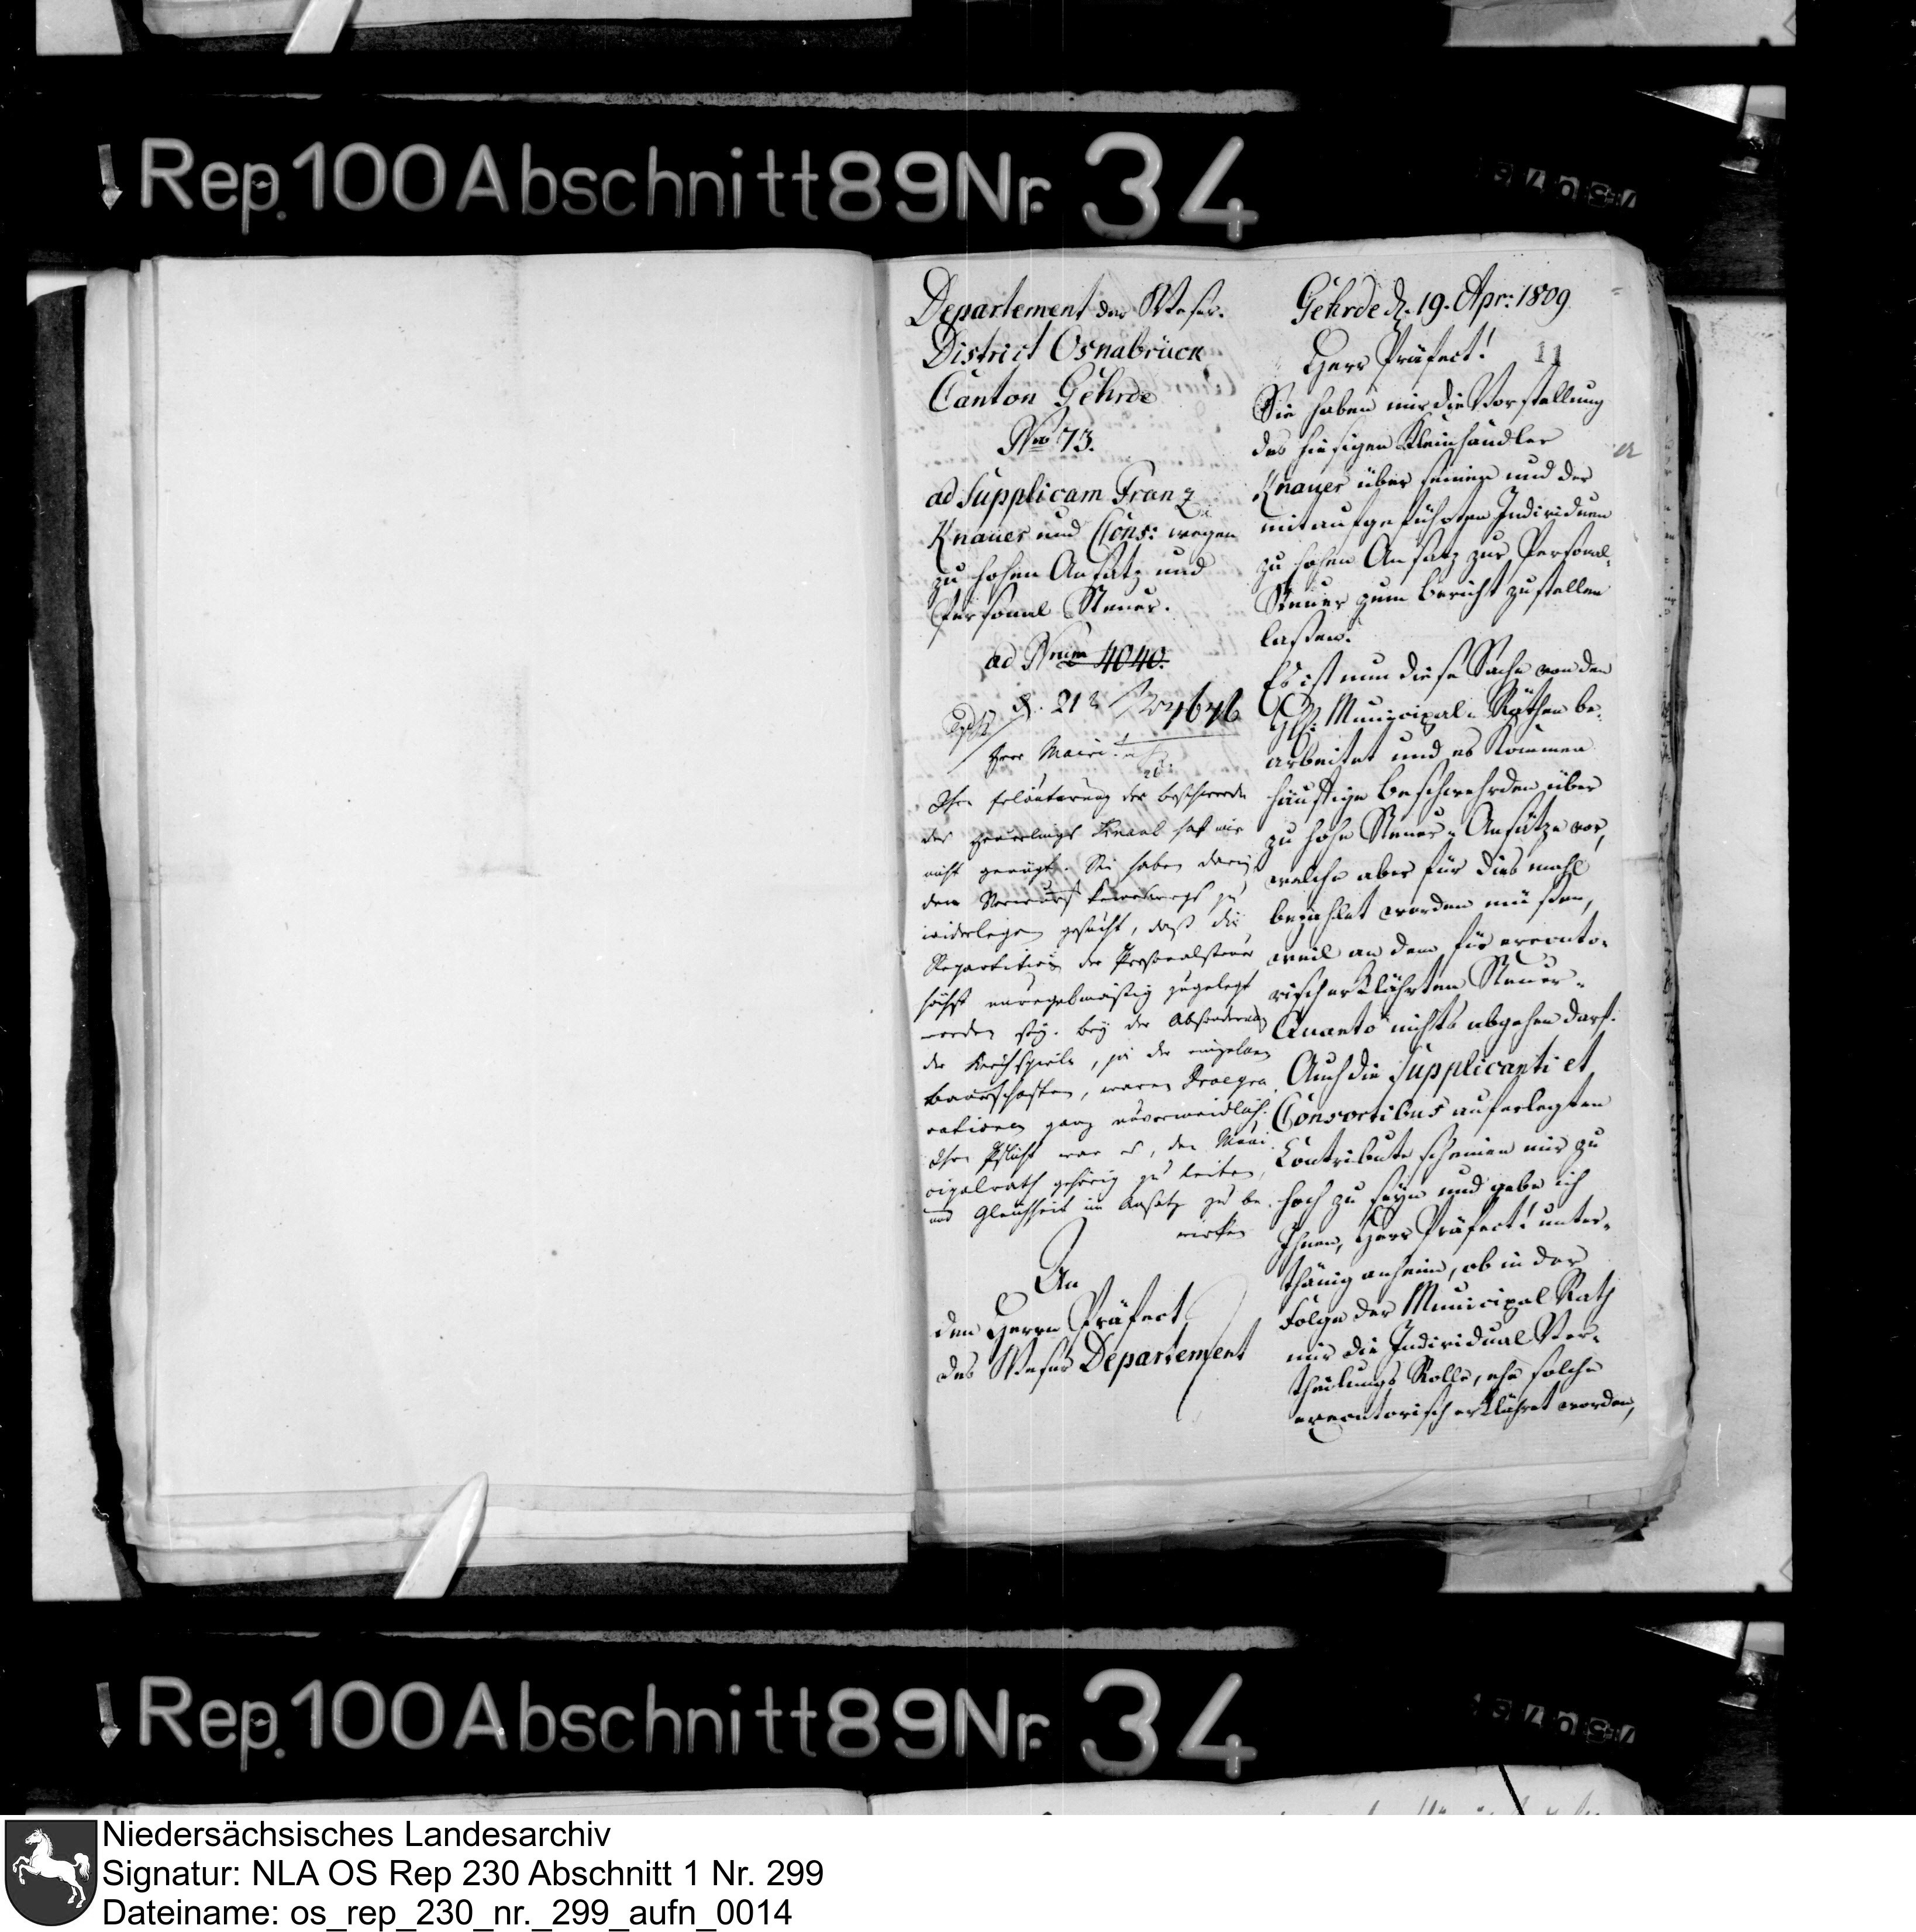 Rep. 100 Abschnitt 89 Nr. 34
Departement der Weser.
District Osnabrück
Canton Gehrde
Nro 73.
ad Supplicam Franz
Knauer und Cons: wegen
zu hohen Ansatz und
Personal Steuer.
ad Num 4040.
d. 21
Herr Maire!
Ihre Erläuterung der Beschwerde
des Heuerlings hat mir
nicht genügt. Sie haben darin
den Vorwurf keineswegs zu
widerlegen gesucht, daß die
Repartition der Personalsteuer
höchst unregelmäßig zugelegt
worden sey. Bey der Absonderung
der Kirchspiele, ja der einzelnen
Bauerschaften, waren
rationen ganz unvermeidlich.
Ihre Pflicht war es, den Muni
cipalrath gehörig zu leiten,
und Gleichheit im Ansatz zu be
wirken
An
den Herrn Präfect
des Weser Departement
Gehrde d. 19. Apr: 1809
Herr Präfect!
11
Sie haben mir die Vorstellung
des hiesigen Kleinhändler
Knauer über seinen und der
mitaufgeführten Individuen
zu hohen Ansatz zur Personal-
Steuer zum Bericht zustellen
laßen.
Es ist nun diese Sache von den
HH. Municipal-Räthen be-
arbeitet und es kommen
häuffige Beschwehrden über
zu hohe Steuer-Ansätze vor,
welche aber für dies mahl
bezahlet werden müßen,
weil an dem für executo-
risch erklährten Steuer-
Quanto nichts abgehen darf.
Auch die Supplicanti et
Consortibus auferlegten
Contribute scheinen mir zu
hoch zu seyn und gebe ich
Ihnen, Herr Präfect! unter-
thänig anheim, ob in der
Folge der Municipal Rath
mir die Individual Ver-
theilungs Rolle, ehe solche
executorisch erklähret worden,
Rep. 100 Abschnitt 89 Nr. 34
Niedersächsisches Landesarchiv
Signatur: NLA OS Rep 230 Abschnitt 1 Nr. 299
Dateiname: os_rep_230_nr._299_aufn_0014